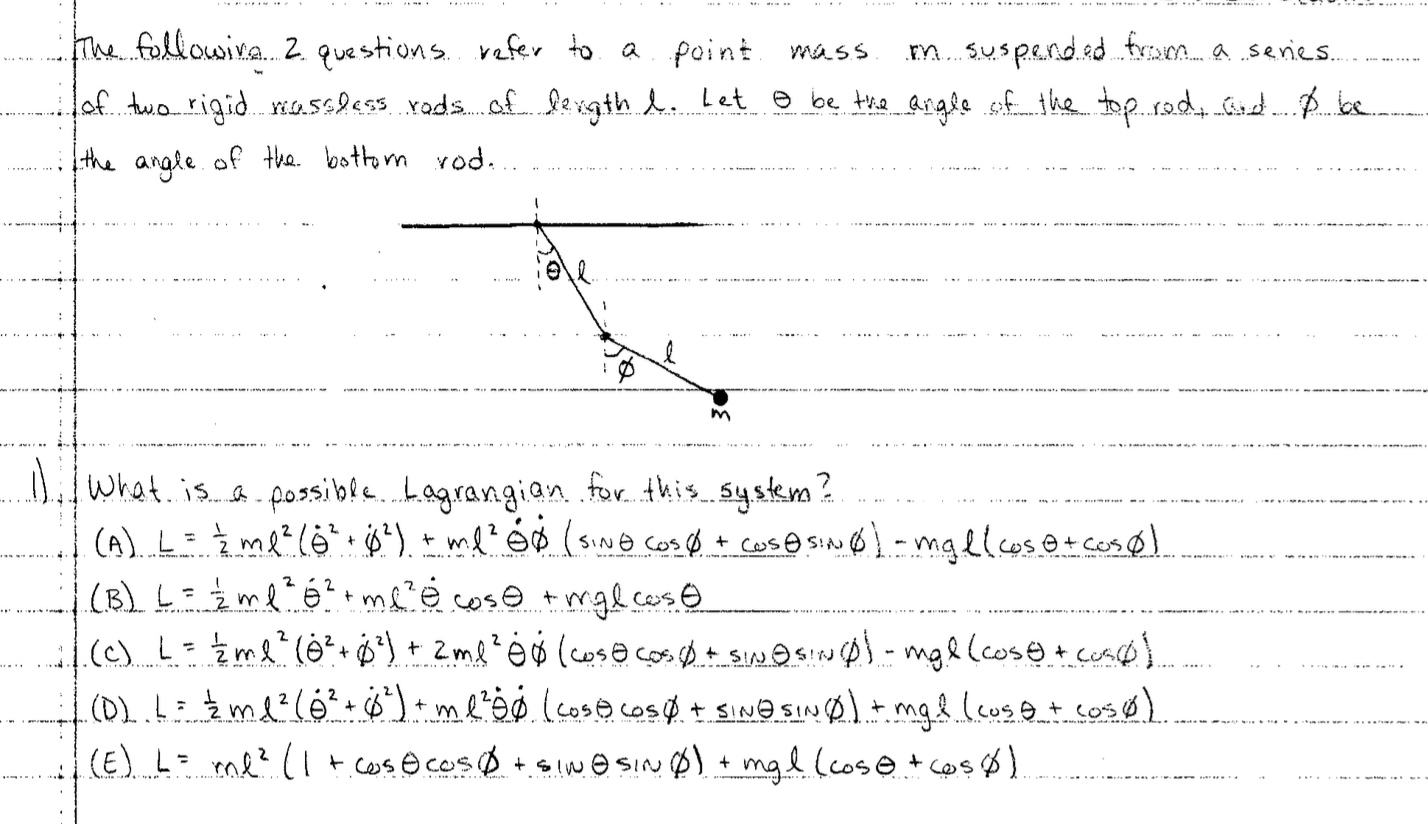 The following 2 questions refer to a point mass m suspended from a series
of two rigid massless rods of length l. Let θ be the angle of the top rod, and ϕ be
the angle of the bottom rod.
θ l
l
ϕ
m
1) What is a possible Lagrangian for this system?
(A) L = ½ml²(θ̇² + ϕ̇²) + ml² θ̇ϕ̇ (sinθ cosϕ + cosθ sinϕ) - mgl(cosθ + cosϕ)
(B) L = ½ml²θ̇² + ml²θ̇ cosθ + mgl cosθ
(C) L = ½ml²(θ̇² + ϕ̇²) + 2ml² θ̇ϕ̇ (cosθ cosϕ + sinθ sinϕ) - mgl(cosθ + cosϕ)
(D) L = ½ml²(θ̇² + ϕ̇²) + ml²θ̇ϕ̇ (cosθ cosϕ + sinθ sinϕ) + mgl (cosθ + cosϕ)
(E) L = ml² (1 + cosθ cosϕ + sinθ sinϕ) + mgl (cosθ + cosϕ)